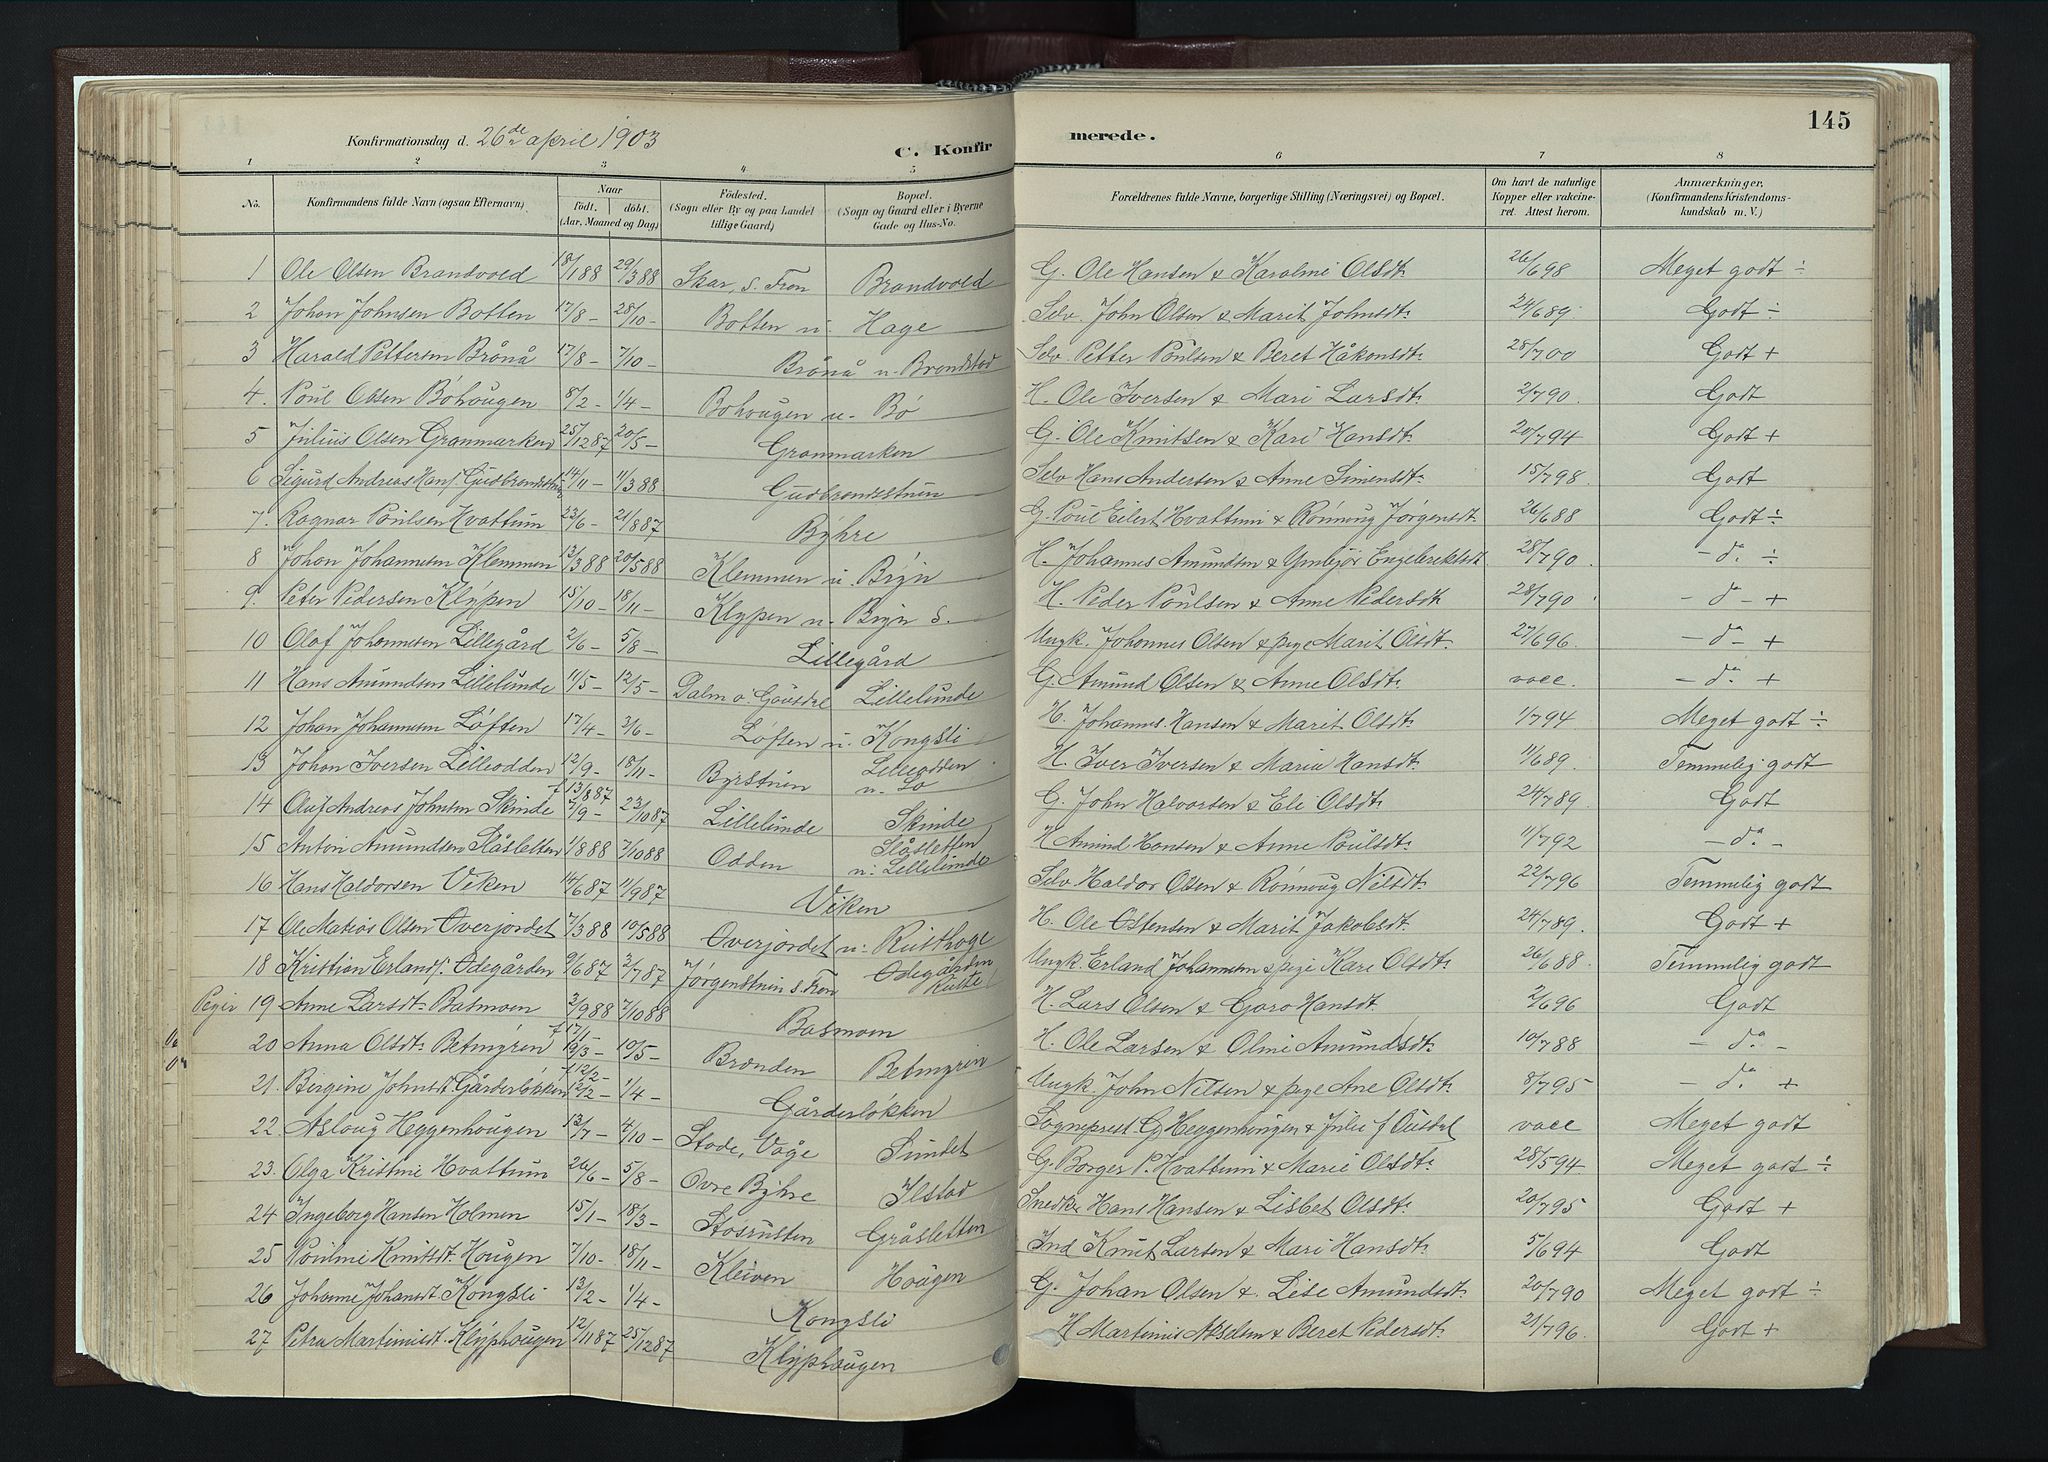 145
Konfirmationsdag d. 26de april 1903
C. Konfir
merede.
1 2 3 4 5 6 7 8
No. Konfirmandens fulde Navn (ogsaa Efternavn). Naar födt. döbt. (Aar, Maaned og Dag) Födested. (Sogn eller By og paa Landet tillige Gaard) Bopæl. (Sogn og Gaard eller i Byerne Gade og Hus-No. Forældrenes fulde Navne, borgerlige Stilling (Næringsvei) og Bopæl. Om havt de naturlige Kopper eller vakcineret. Attest herom. Anmærkninger, (Konfirmandens Kristendomskundskab m. V.)
1 Ole Olsen Brandvold 18/1 88 29/3 88 Skar, s. Fron Brandvold G. Ole Hansen & Karoline Olsdt. 26/6 98 Meget godt ÷
2 Johan Johnsen Botten 17/8 – 28/10 – Botten u. Hage Selv. John Olsen & Marit Johnsdt. 24/6 89. Godt ÷
3 Harald Pettersen Brånå 17/8 – 7/10 – Brånå u. Brandstad Selv. Petter Poulsen & Beret Håkonsdt. 25/7 00 Godt +
4. Poul Olsen Bøhougen 8/2 – 1/4 – Bøhougen u. Bø H. Ole Iversen & Mari Larsdt. 2/7 90. Godt
5 Julius Olsen Granmarken 25/12 87 20/5 – Granmarken G. Ole Knutsen & Kari Hansdt. 20/7 94 Godt +
6 Sigurd Andreas Hans. Gudbrandstuen 14/11 – 11/3 88 Gudbrandstuen Selv Hans Andersen & Anne Simensdt. 15/7 98 Godt
7. Ragnar Poulsen Hvattum 23/6 – 21/8 87 Byhre G. Poul Eilert Hvattum & Rønnoug Jørgensdt. 26/6 88 Godt ÷
8 Johan Johannesen Klemmen 13/3 88 20/5 88 Klemmen u. Bryn H. Johannes Amundsen & Ymbjør Engebrektsdt. 28/7 90. – do. ÷
9. Peter Pedersen Klypen 15/10 – 18/11 – Klypen u. Bryn s. H. Peder Poulsen & Anne Pedersdt. 28/7 90 – do – +
10 Olaf Johannesen Lillegård 2/6 – 5/8 – Lillegård Ungk. Johannes Olsen & pige Marit Olsdt. 27/6 96. – do – +
11 Hans Amundsen Lillelunde 11/5 – 12/5 – Dalm ø. Gausdal Lillelunde G. Amund Olsen & Anne Olsdt. vacc. – do. +
12 Johan Johannesen Løften 17/4 – 3/6 – Løften u. Kongsli H. Johannes Hansen & Marit Olsdt. 1/7 94 Meget godt ÷
13 Johan Iversen Lilleodden 12/9 – 18/11 – Byrstuen Lilleodden u. Lo H. Iver Iversen & Maria Hansdt. 11/6 89. Temmelig godt
14 Oluf Andreas Johnsen Skinde f 13/8 87 7/9 – 23/10 87 Lillelunde Skinde G. John Halvorsen & Eli Olsdt. 24/7 89. Godt
15 Anton Amundsen Slåsletten 1/8 88 7/10 88 Odden Slåsletten u. Lillelunde H Amund Hansen & Anne Poulsdt. 11/7 92 – do. –
16 Hans Haldorsen Viken 14/6 87 11/9 87 Viken Selv. Haldor Olsen & Rønnoug Nilsdt. 22/7 96 Temmelig godt
17 Ole Matias Olsen Øverjordet 7/3 88 10/5 88 Øverjordet u. Rusthage H. Ole Østensen & Marit Jakobsdt. 24/7 89. Godt +
18 Kristian Erlands. Ødegården 9/6 87 3/7 87 Jørgenstuen s. Fron Ødegården Ungk. Erland Johannesen & pige Kari Olsdt. 26/6 88 Temmelig godt
Piger 19 Anne Larsdt. Basmoen 2/9 88 7/10 88 Basmoen H. Lars Olsen & Goro Hansdt. 2/6 96 Godt
20 Anna Olsdt. Betmyren f 17/1 – 19/3 – 10/5 – Brenden Betmyren H. Ole Larsen & Olini Amundsdt. 10/7 88 – do –
21. Birgine Johnsdt. Gårderløkken f 12/2 – 12/2 – 1/4 – Gårderløkken Ungk. John Nilsen & pige Ane Olsdt. 8/7 95 – do. +
22. Aslaug Heggenhougen 13/7 – 4/10 – Stade, Våge Sundet Sogneprest G. Heggenhougen & Julie f Ousdal vacc Meget godt
23. Olga Kristine Hvattum 26/6 – 5/8 – Øvre Byhre Ilstad G. Borger P. Hvattum & Marie Olsdt. 28/5 94 Meget godt ÷
24 Ingeborg Hansen Holmen 15/1 – 18/3 – Stosrusten Gråsletten Snedker Hans Hansen & Lisbet Olsdt. 20/7 95 Godt +
25 Pouline Knutsdt. Hougen 7/10 – 18/11 – Kleiven Hougen Ind Knut Larsen & Mari Hansdt. 5/6 94 Godt
26 Johanne Johansdt. Kongsli 13/2 – 1/4 – Kongsli G. Johan Olsen & Lise Amundsdt. 20/7 90 Meget godt ÷
27 Petra Martinusdt. Klyphougen 12/11 87 25/12 87 Klyphougen H Martinus Akselsen & Beret Pedersdt. 21/7 96. Godt +